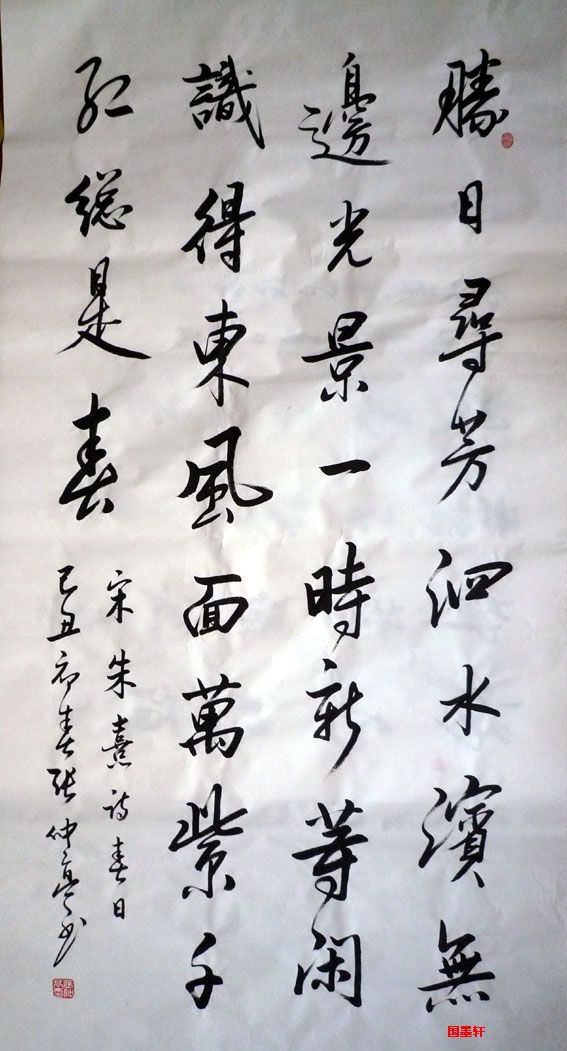 勝日尋芳泗水濱無
邊光景一時新等閑
識得東風面萬紫千
紅總是春
宋朱熹詩春日
己丑初春張仲亭书
国墨轩